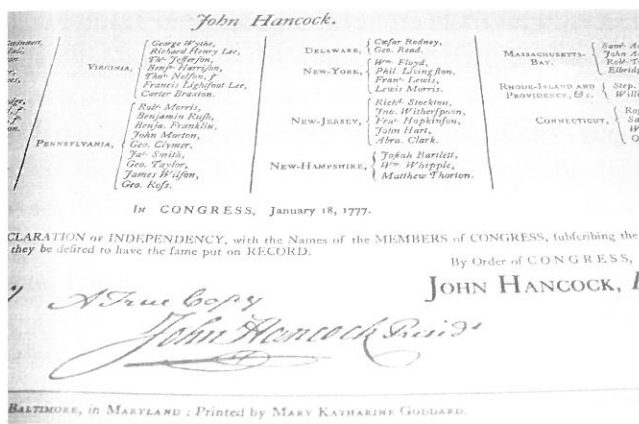 John Hancock.
VIRGINIA, George Wythe,
Richard Henry Lee,
Ths. Jefferson,
Benja. Harrison,
Thos. Nelson, jr.
Francis Lightfoot Lee,
Carter Braxton.
PENNSYLVANIA, Robt. Morris,
Benjamin Rush,
Benja. Franklin,
John Morton,
Geo. Clymer,
Jas. Smith,
Geo. Taylor,
James Wilson,
Geo. Ross.
DELAWARE, Cæsar Rodney,
Geo. Read.
NEW-YORK, Wm. Floyd,
Phil. Livingston,
Frans. Lewis,
Lewis Morris.
NEW-JERSEY, Richd. Stockton,
Jno. Witherspoon,
Fras. Hopkinson,
John Hart,
Abra. Clark.
NEW-HAMPSHIRE, Josiah Bartlett,
Wm. Whipple,
Matthew Thorton.
MASSACHUSETTS-
BAY.
RHODE-ISLAND AND
PROVIDENCE, &c. Step.
CONNECTICUT,
IN CONGRESS, January 18, 1777.
CLARATION OF INDEPENDENCY, with the Names of the MEMBERS of CONGRESS, subscribing the
they be desired to have the same put on RECORD.
By Order of CONGRESS,
JOHN HANCOCK,
A True Copy
John Hancock Presidt
BALTIMORE, in MARYLAND: Printed by MARY KATHARINE GODDARD.